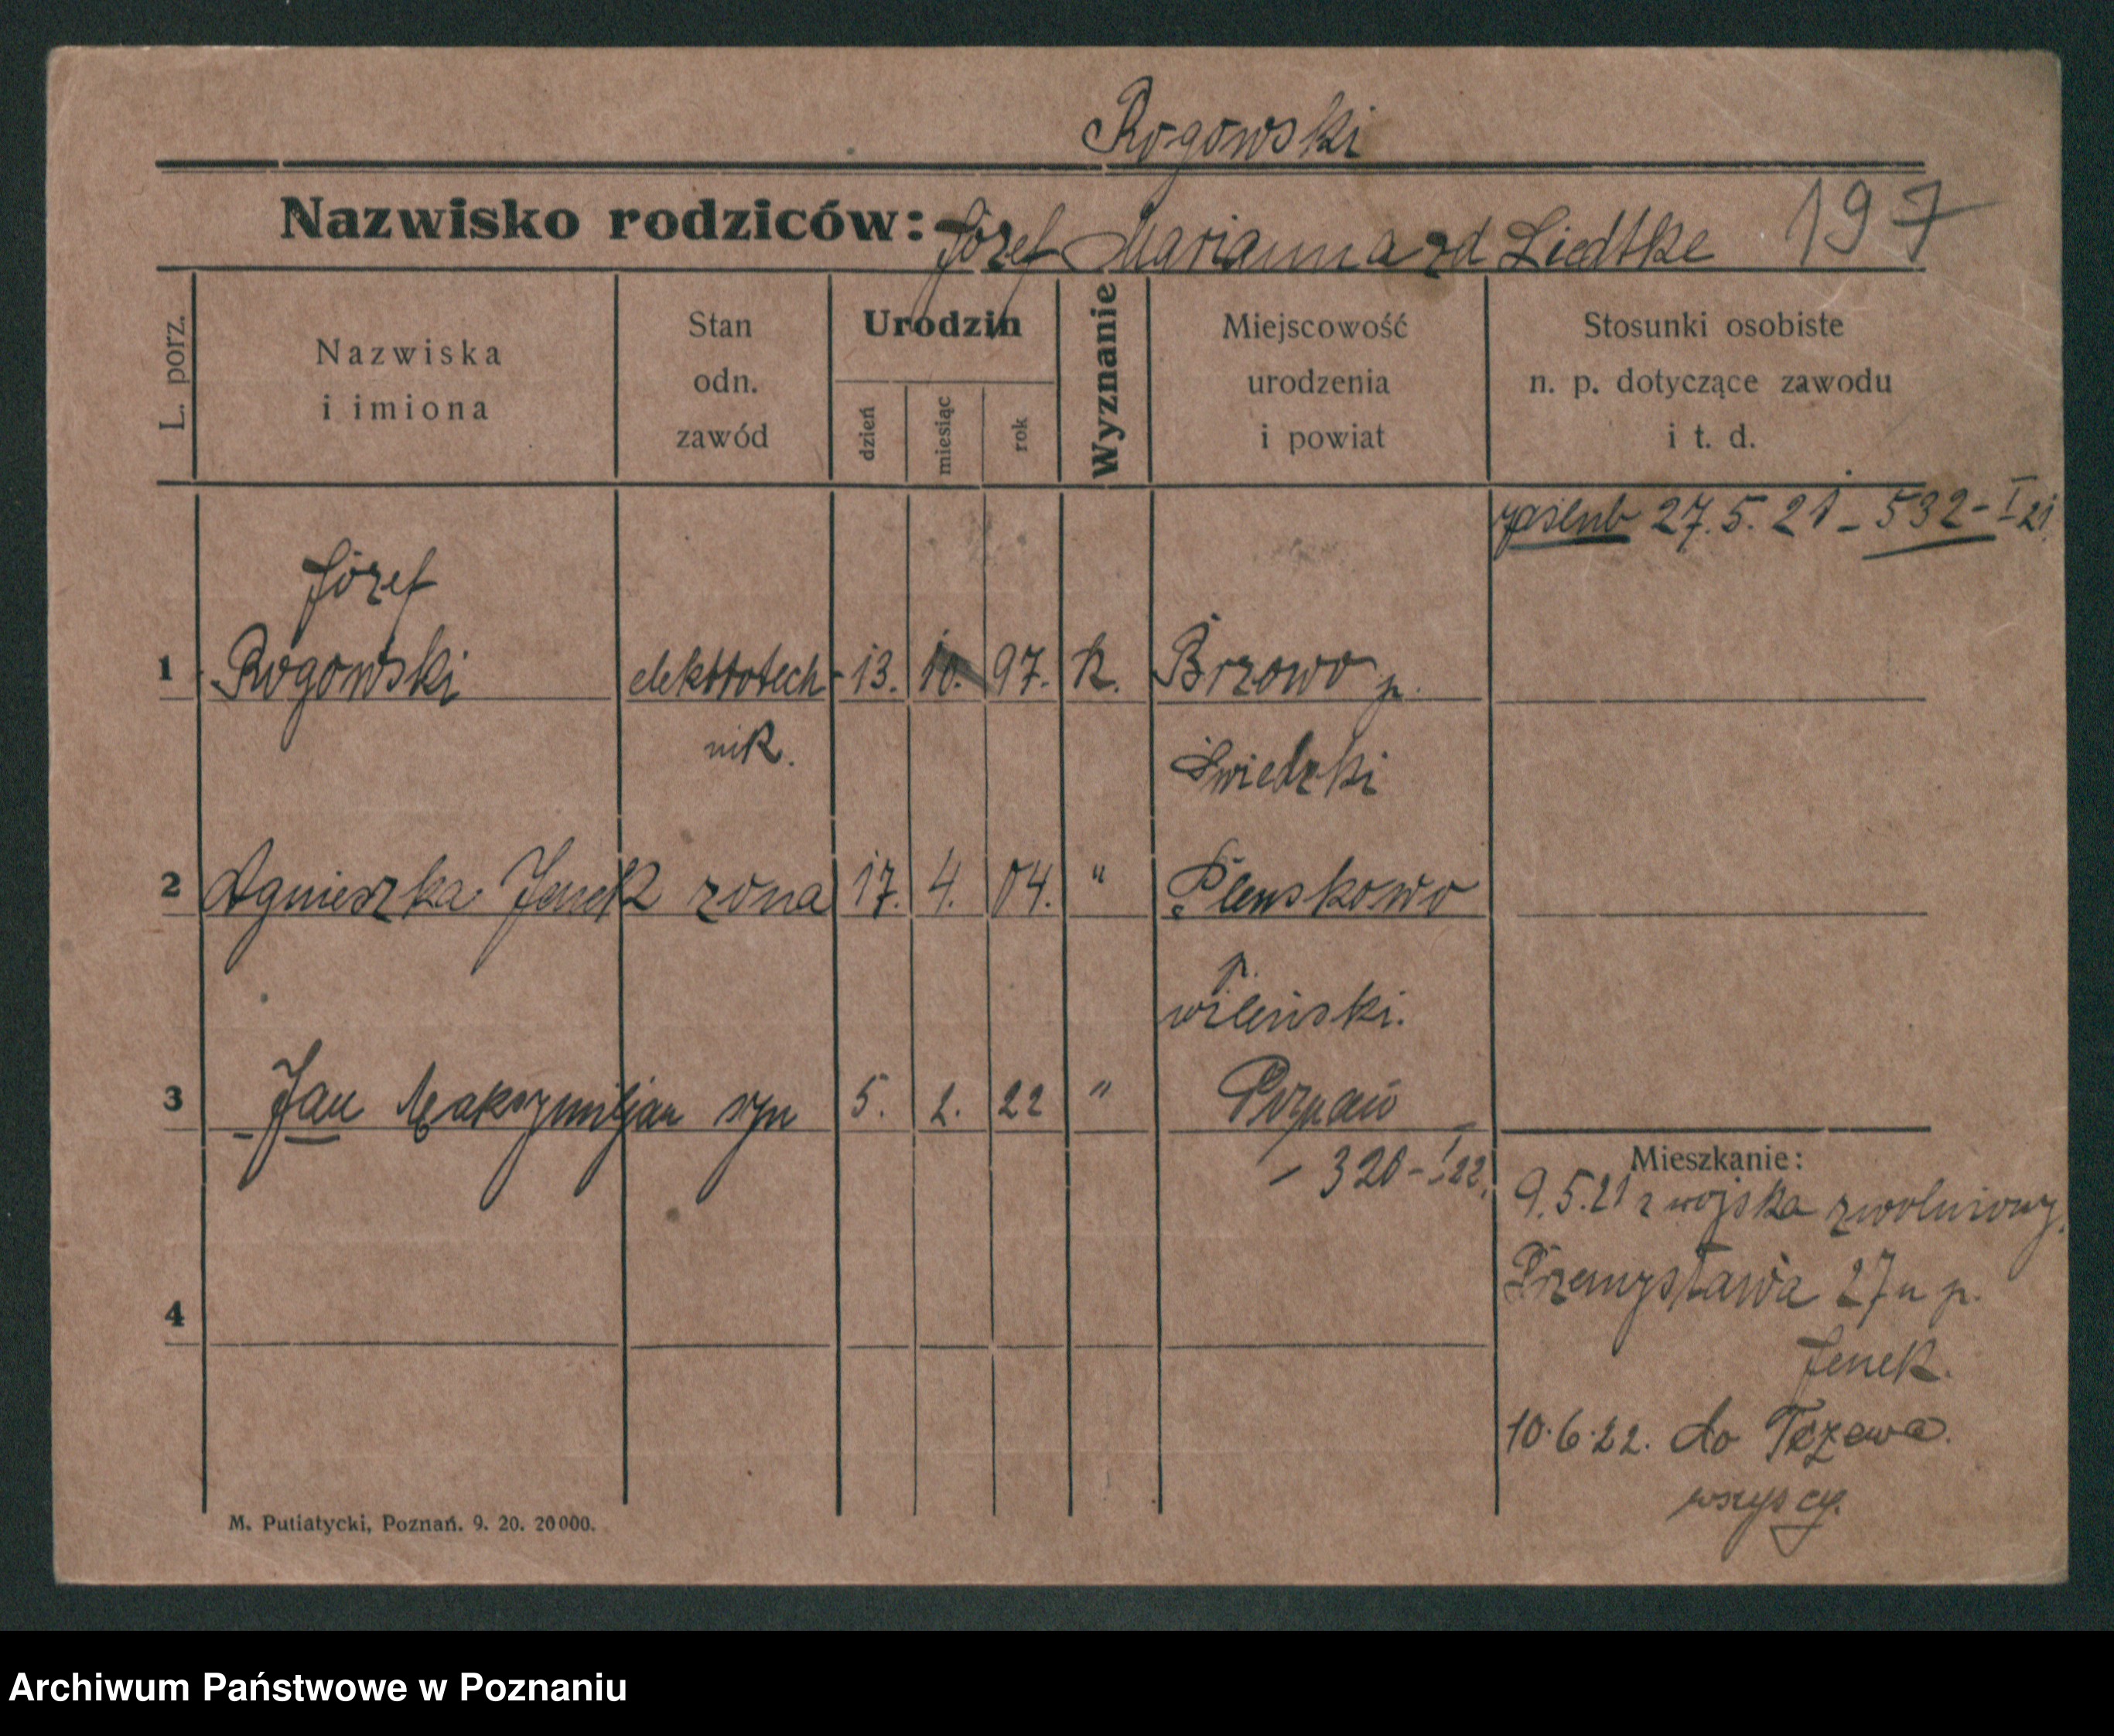 Rogowski
Nazwisko rodziców: Józef Marianna zd Liedtke 197
L. porz.
Nazwiska
i imiona
Stan
odn.
zawód
Urodzin
dzień
miesiąc
rok
Wyznanie
Miejscowość
urodzenia
i powiat
Stosunki osobiste
n. p. dotyczące zawodu
i t. d.
27.5.21 - 532 - I 21
Józef
1 Rogowski elektrotech- 13. 10. 97. k. Brzowo p.
nik. Świecki
2 Agnieszka Jenek żona 17. 4. 04. " Plenskowo
p.
wileński.
3 Jan Maksymiljan syn 5. 2. 22 " Poznań
- 320 - I 22.
Mieszkanie:
9.5.21 z wojska zwolniony.
Przemysława 27 u p.
Jenek.
4
10.6.22. do Tczewa.
wszyscy.
M. Putiatycki, Poznań. 9. 20. 20000.
Archiwum Państwowe w Poznaniu